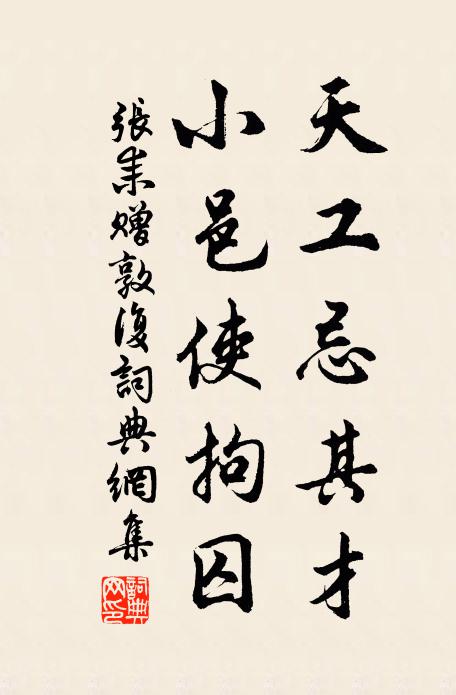 天工忌其才
小邑使拘囚
張耒贈敦復詞典網集
詞典網印